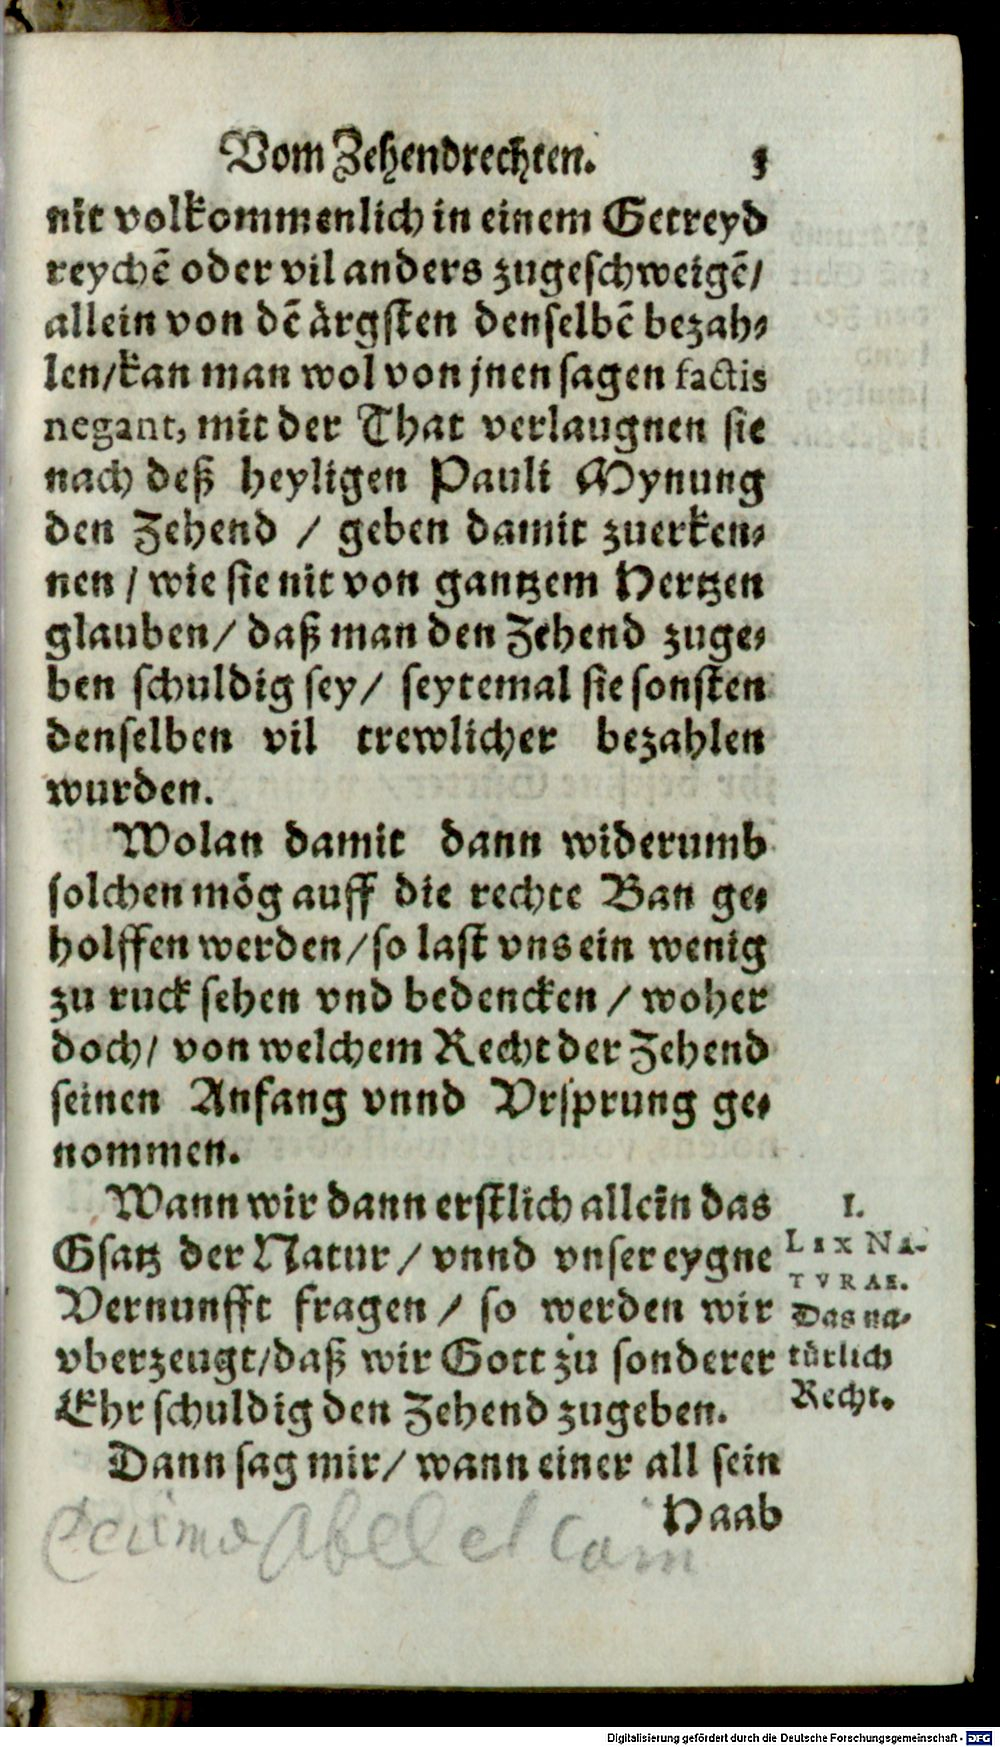 Vom Zehendrechten. 3
nit volkommenlich in einem Getreyd
reychē oder vil anders zugeschweigē/
allein von dē ärgsten denselbē bezah⸗
len/kan man wol von jnen sagen factis
negant, mit der That verlaugnen sie
nach deß heyligen Pauli Mynung
den Zehend / geben damit zuerken⸗
nen / wie sie nit von gantzem Hertzen
glauben/ daß man den Zehend zuge⸗
ben schuldig sey/ seytemal sie sonsten
denselben vil trewlicher bezahlen
wurden.
Wolan damit dann widerumb
solchen mög auff die rechte Ban ge⸗
holffen werden/so last vns ein wenig
zu ruck sehen vnd bedencken / woher
doch/ von welchem Recht der Zehend
seinen Anfang vnnd Vrsprung ge⸗
nommen.
Wann wir dann erstlich allein das
Gsatz der Natur / vnnd vnser eygne
Vernunfft fragen / so werden wir
vberzeugt/daß wir Gott zu sonderer
Ehr schuldig den Zehend zugeben.
I.
LEX NA-
TVRAE.
Das na⸗
türlich
Recht.
Dann sag mir/ wann einer all sein
Haab
Abel et Cain
Digitalisierung gefördert durch die Deutsche Forschungsgemeinschaft - DFG